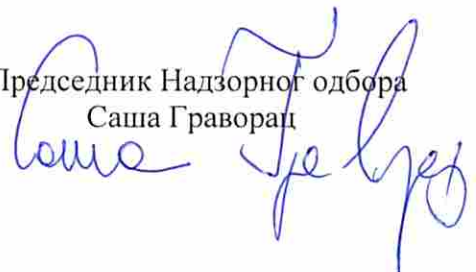 Председник Надзорног одбора
Саша Граворац
Саша